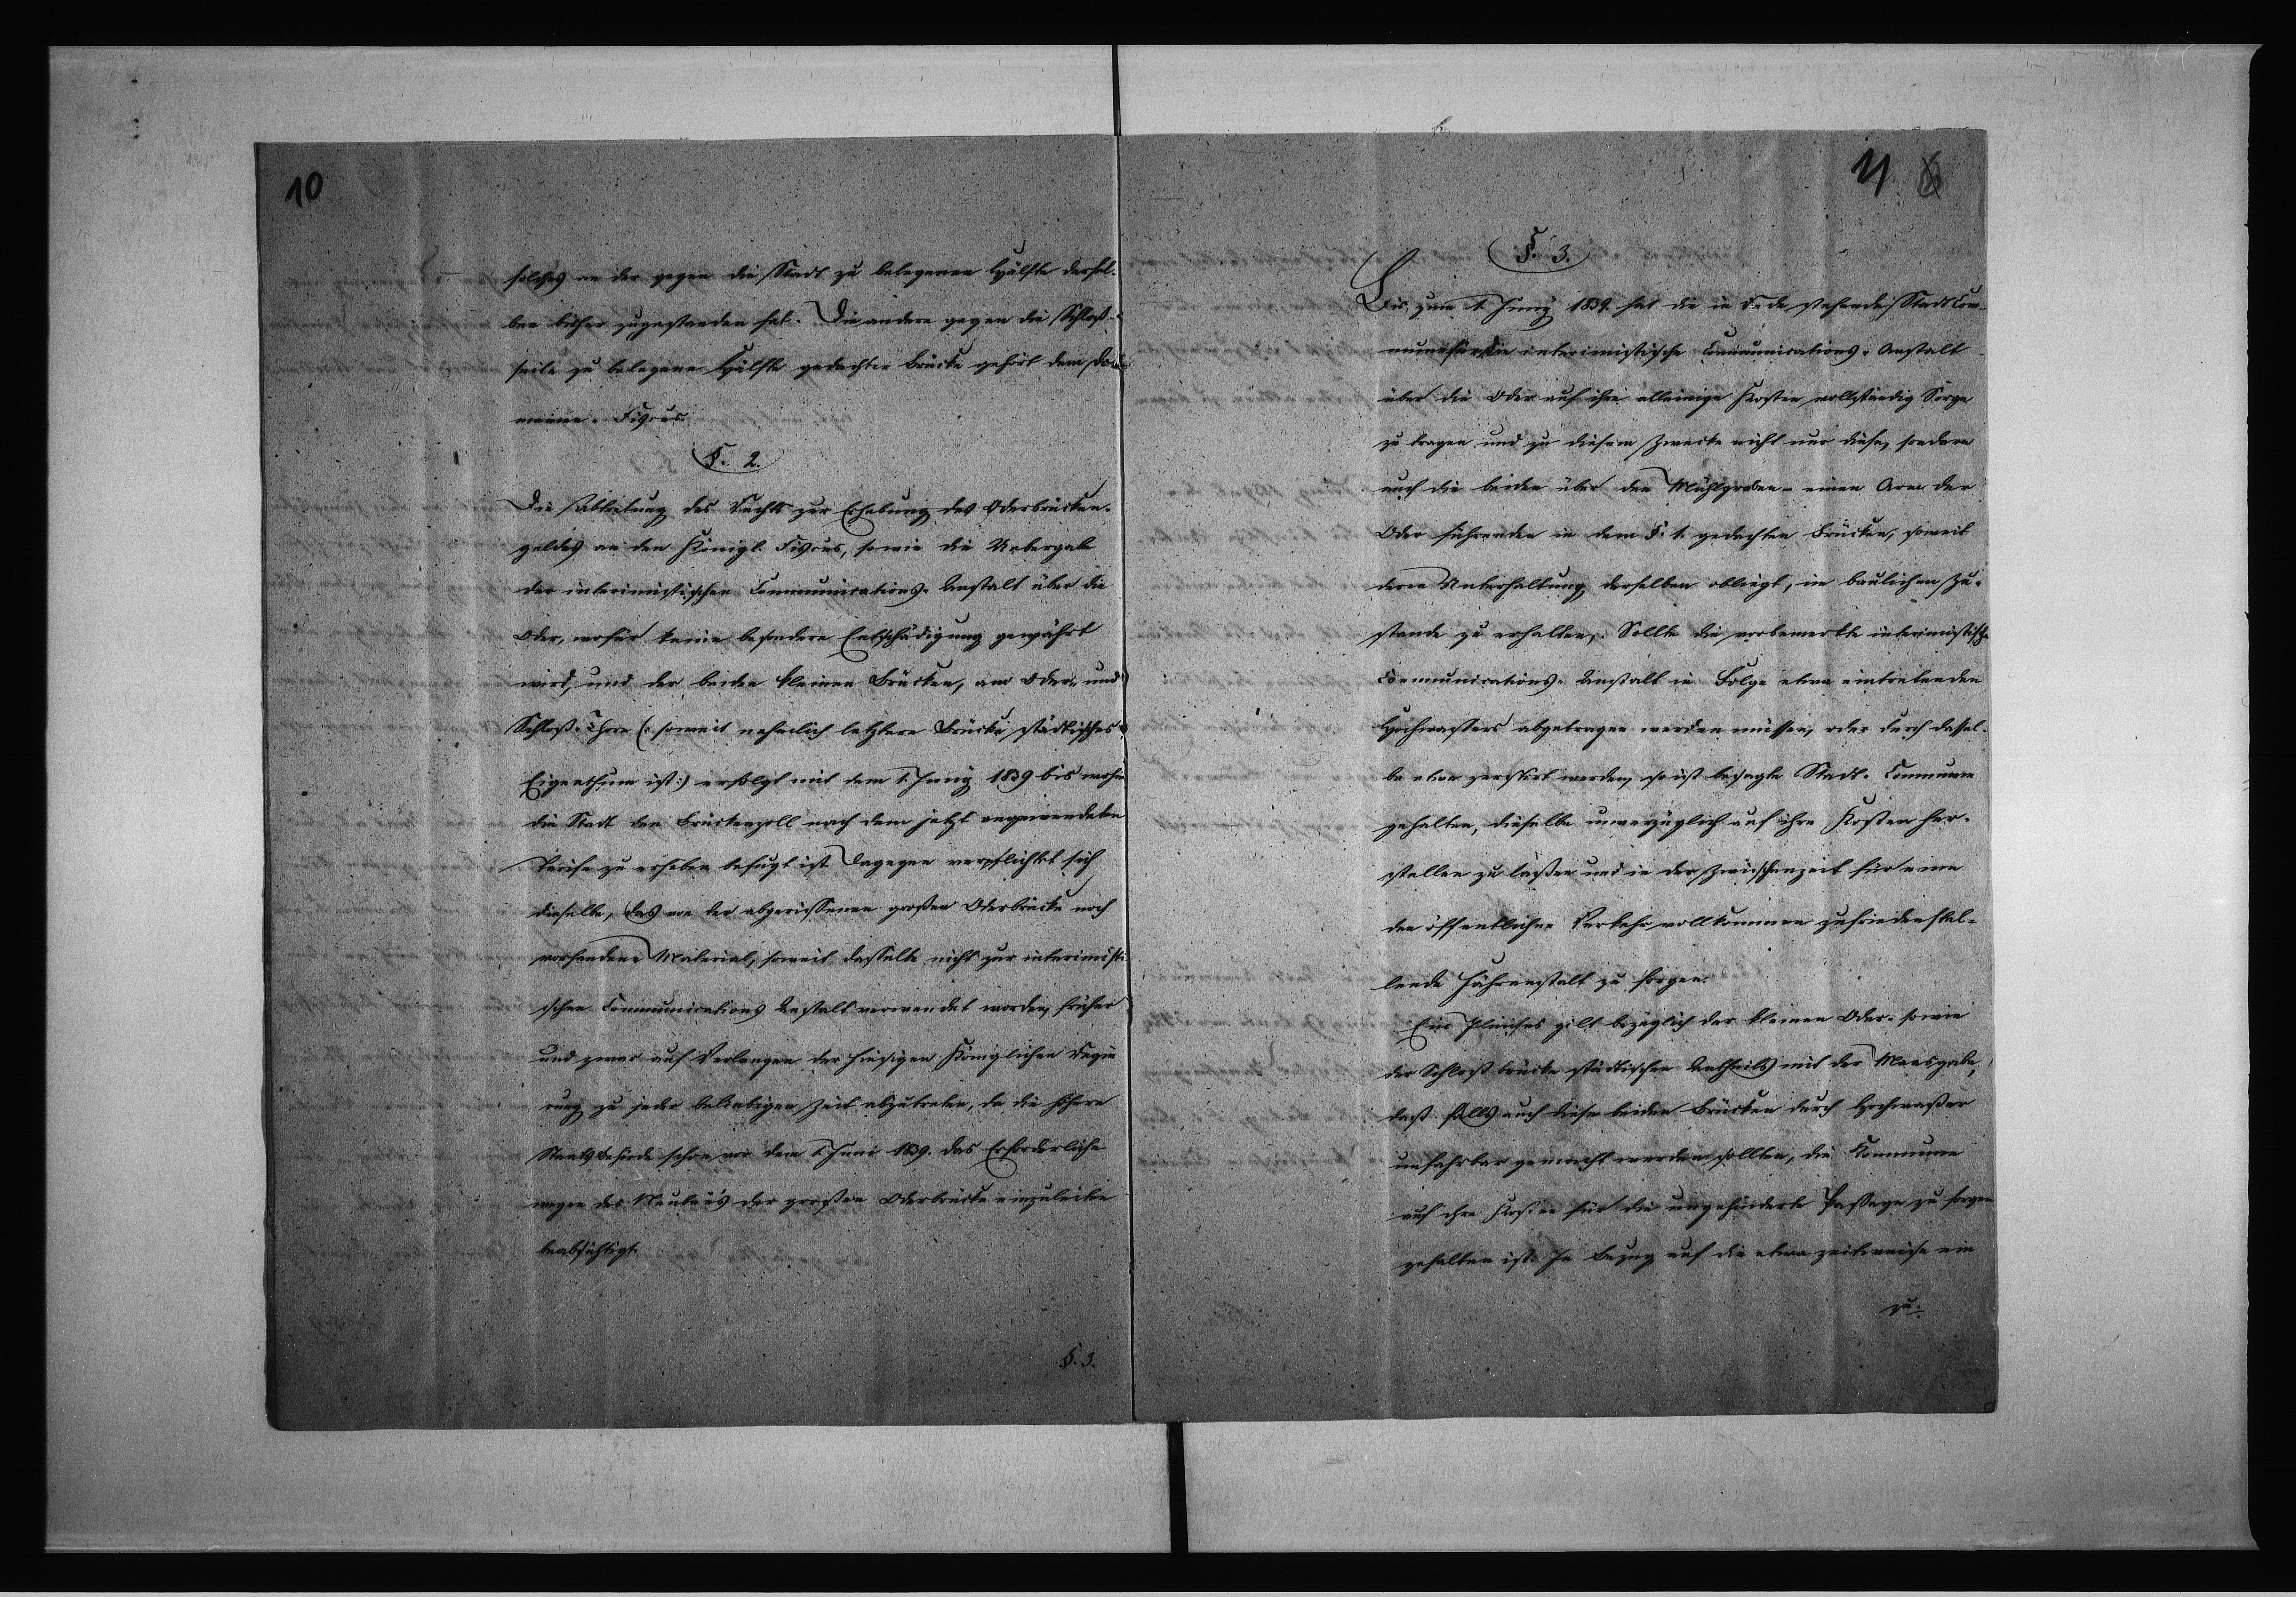 10
solches an der gegen die Stadt zu belegenen Hälfte dersel-
ben bisher zugestanden hat. Die andere gegen die Schloß-
seite zu belegene Hälfte gedachter Brücke gehört dem Do-
mainen-Fiscus.
§. 2.
Die Abtretung des Rechts zur Erhebung des Oderbrücken-
geldes an den Königl. Fiscus, sowie die Uebergabe
der interimistischen Communications-Anstalt über die
Oder, wofür keine besondere Entschädigung gewährt
wird, und der beiden kleinen Brücken, am Oder- und
Schloß-Thore (: soweit nehmlich letztere Brücke städtisches
Eigenthum ist :) erfolgt mit dem 1. Juny 1839 bis wohin
die Stadt den Brückenzoll nach dem jetzt angewendeten
Tarife zu erheben befugt ist. Dagegen verpflichtet sich
dieselbe, das von der abgerissenen großen Oderbrücke noch
vorhandene Material, soweit dasselbe nicht zur interimisti-
schen Communications Anstalt verwendet worden, früher
und zwar auf Verlangen der hiesigen Königlichen Regie
rung zu jeder beliebigen Zeit abzutreten, da die höhere
Staatsbehörde schon vor dem 1. Juni 1839. das Erforderliche
wegen des Neubau's der großen Oderbrücke einzuleiten
beabsichtigt.
§. 3.
11
§. 3.
Bis zum 1. Juny 1839. hat die in Rede stehende Stadt Com-
mune für die interimistische Communications-Anstalt
über die Oder auf ihre alleinige Kosten vollständig Sorge
zu tragen und zu diesem Zwecke nicht nur diese, sondern
auch die beiden über den Mühlgraben - einen Arm der
Oder führenden in dem §. 1. gedachten Brücken, soweit
deren Unterhaltung derselben obliegt, im baulichen Zu-
stande zu erhalten. Sollte die vorbemerkte interimistische
Communications-Anstalt in Folge etwa eintretenden
Hochwassers abgetragen werden müssen, oder durch dassel-
be etwa zerstört werden, so ist besagte Stadt-Commune
gehalten, dieselbe unverzüglich auf ihre Kosten her-
stellen zu laßen und in der Zwischenzeit für eine
den öffentlichen Verkehr vollkommen zufriedenstel-
lende Fähranstalt zu sorgen.
Ein Gleiches gilt bezüglich der kleinen Oder- sowie
der Schloßbrücke städtischen Antheils mit der Maasgabe,
daß falls auch diese beiden Brücken durch Hochwaßer
unfahrbar gemacht werden sollten, die Kommune
auf ihre Kosten für die ungehinderte Passage zu sorgen
gehalten ist. In Bezug auf die etwa zeitweise ein
zu-